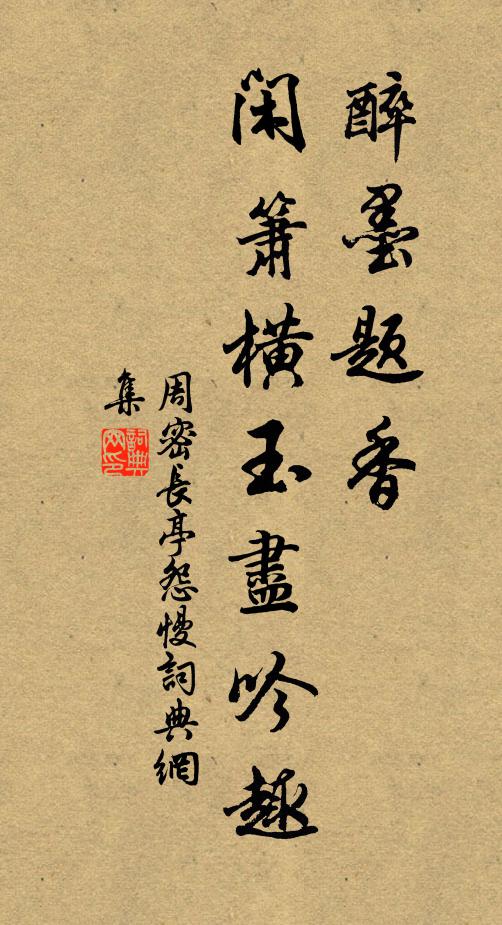 醉墨題香
閑簫橫玉盡吟趣
周密長亭怨慢詞典網
集
詞典
网印